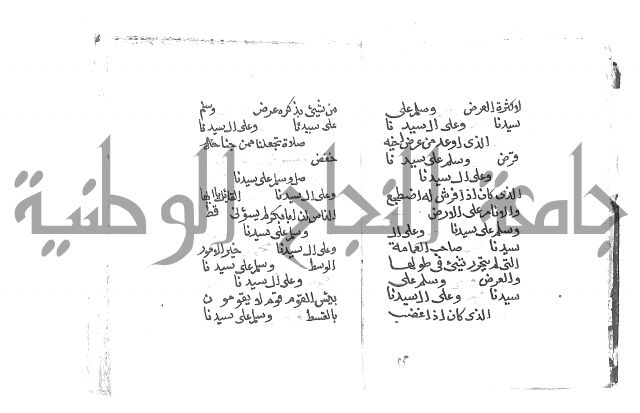 لا كثرة العرض وسلم على
سيدنا وعلى ال سيدنا
الذى اوعد من عرض اخيه
قرض وسلم على سيدنا
وعلى ال سيدنا
الذى كان اذا فرش له اضطجع
والا نام على الارض
وسلم على سيدنا وعلى ال
سيدنا صاحب العمامة
التى لم يتحرر شيئ فى طولها
والعرض وسلم على
سيدنا وعلى ال سيدنا
الذى كان اذا غضب
من شيئ بذكره عرض وسلم
على سيدنا وعلى ال سيدنا
صلاة تجعلنا ممن جناحا
خفض
صل وسلم على سيدنا
وعلى ال سيدنا القائل ايها
الناس قط
وسلم على سيدنا
وعلى ال سيدنا خير الامور
الوسط وسلم على سيدنا
وعلى ال سيدنا
بئس القوم قوم لا يقومون
بالقسط وسلم على سيدنا
جامعة النجاح الوطنية